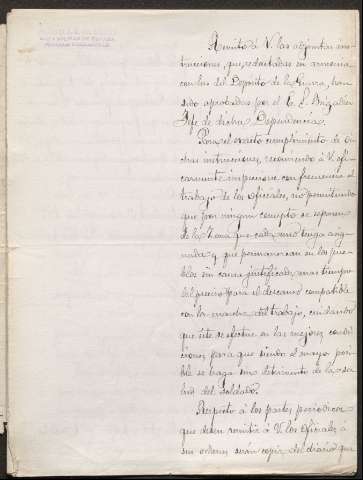 Remito á V. las adjuntas ins-
trucciones, que redactadas en armonia
con las del Depósito de la Guerra, han
sido aprobadas por el E. S. Brigadier
Jefe de dicha Dependencia.
Para el exacto cumplimiento de di-
chas instrucciones, recomiendo á V. efi-
cazmente inspeccione con frecuencia el
trabajo de los oficiales, no permitiendo
que por ningun concepto se separen
de la Zona que cada uno tenga asig-
nada y que permanezcan en los pue-
blos sin causa justificada mas tiempo
del preciso para el descanso compatible
con la marcha del trabajo, cuidando
que este se efectue en las mejores condi-
ciones para que siendo el mayor posi-
ble se haga sin detrimento de la sa-
lud del soldado.
Respecto á los partes periodicos
que deben remitir á V. los oficiales á
sus ordenes seran copia del diario que